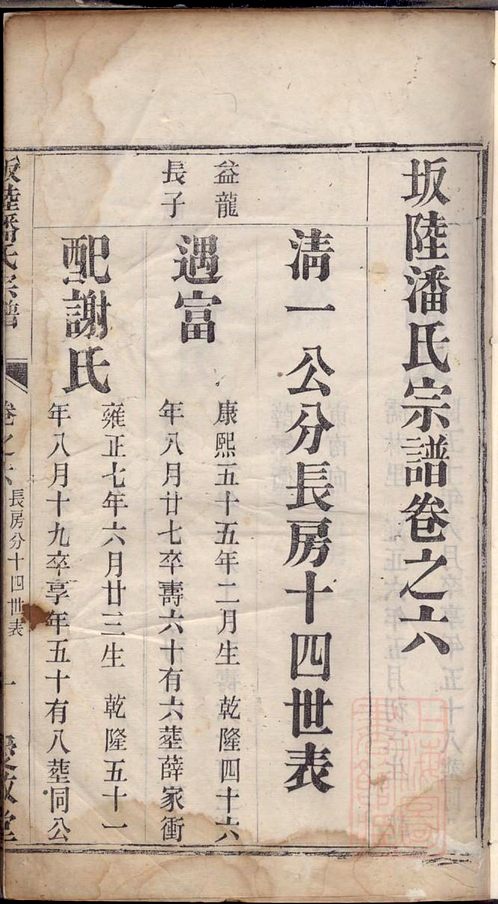 坂陸潘氏宗譜卷之六
清一公分長房十四世表
益龍
長子
遇富
康熙五十五年二月生 乾隆四十六
年八月廿七卒壽六十有六塟薛家衝
配謝氏
雍正七年六月廿三生 乾隆五十一
年八月十九卒享年五十有八塟同公
坂陸潘氏宗譜
卷之六
長房分十四世表
一